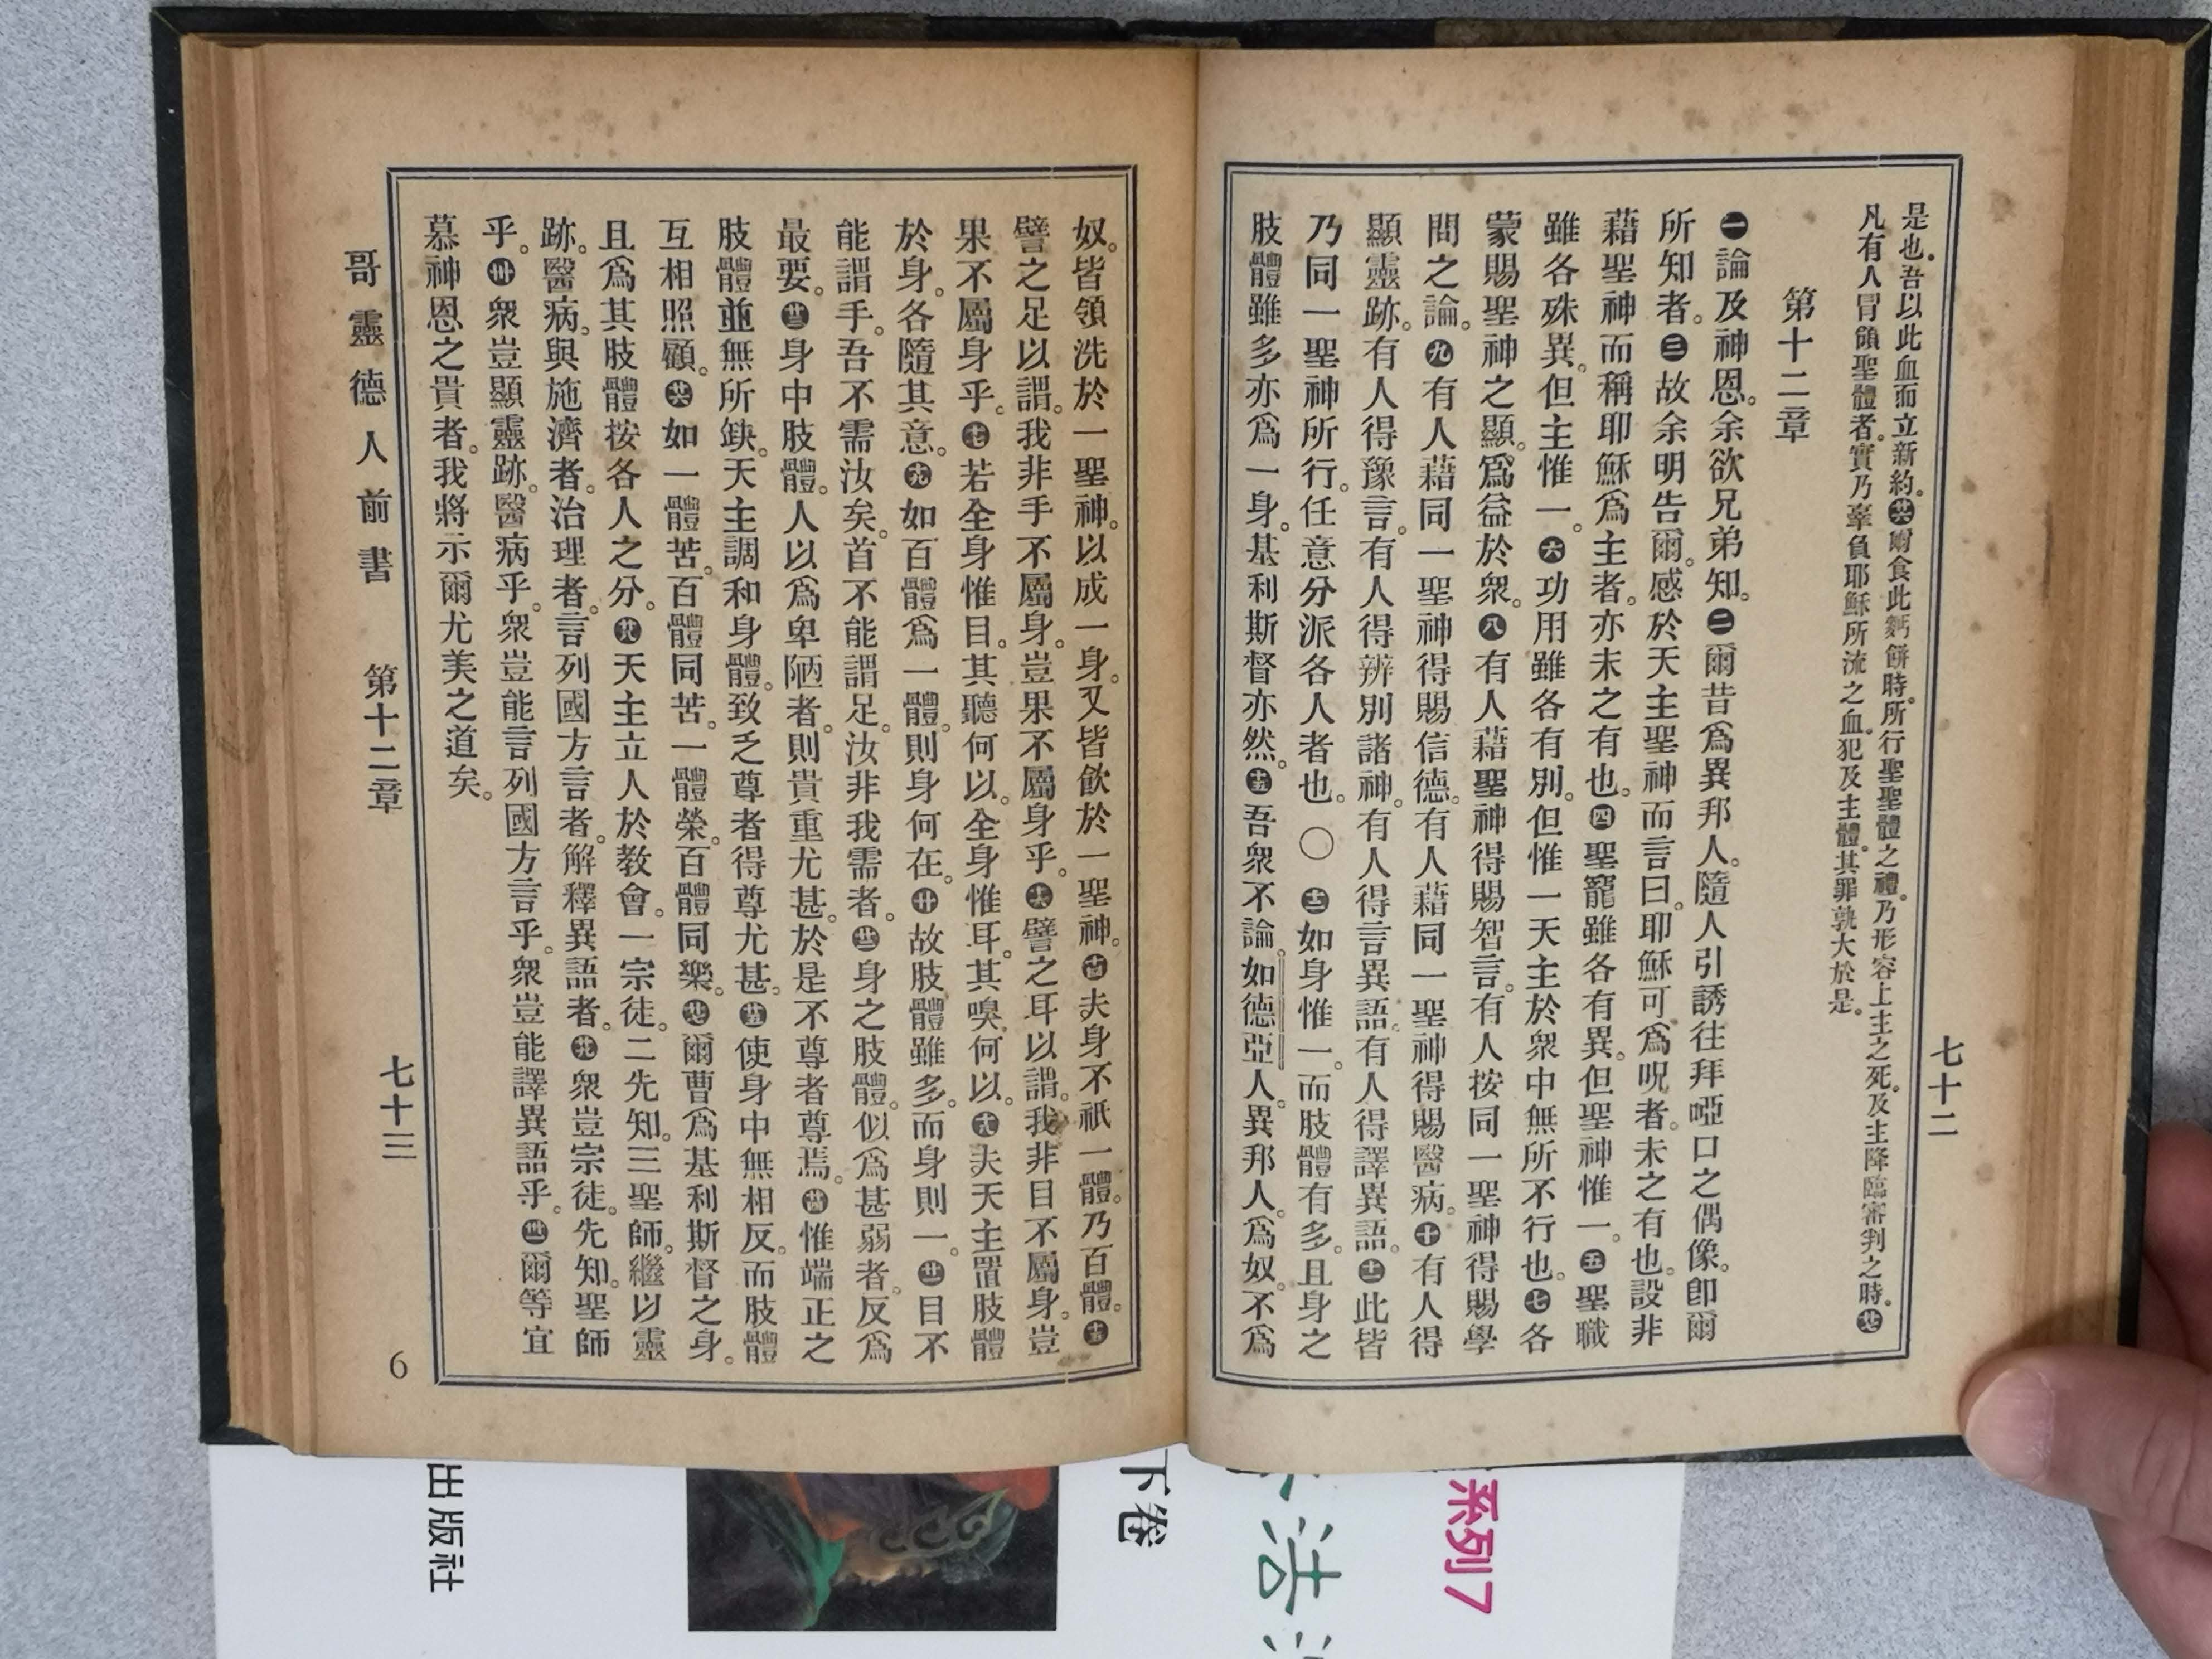 七十二
是也。吾以此血而立新約。㊅爾食此麪餅時。所行聖聖體之禮。乃形容上主之死。及主降臨審判之時。
凡有人冒領聖體者。實乃辜負耶穌所流之血。犯及主體。其罪孰大於是。
第十二章
一論及神恩。余欲兄弟知。二爾昔爲異邦人。隨人引誘往拜啞口之偶像。卽爾
所知者。三故余明告爾。感於天主聖神而言曰。耶穌可爲呪者。未之有也。設非
藉聖神而稱耶穌爲主者。亦未之有也。四聖寵雖各有異。但聖神惟一。五聖職
雖各殊異。但主惟一。六功用雖各有別。但惟一天主於衆中無所不行也。七各
蒙賜聖神之顯。爲益於衆。八有人藉聖神得賜智言。有人按同一聖神得賜學
問之論。九有人藉同一聖神得賜信德。有人藉同一聖神得賜醫病。十有人得
顯靈跡。有人得豫言。有人得辨別諸神。有人得言異語。有人得譯異語。十一此皆
乃同一聖神所行。任意分派各人者也。〇十二如身惟一。而肢體有多。且身之
肢體雖多亦爲一身。基利斯督亦然。十三吾衆不論。如德亞人。異邦人。爲奴。不爲
奴。皆領洗於一聖神。以成一身。又皆飲於一聖神。十四夫身不祇一體。乃百體。十五
譬之足以謂。我非手不屬身。豈果不屬身乎。十六譬之耳以謂。我非目不屬身。豈
果不屬身乎。十七若全身惟目。其聽何以。全身惟耳。其嗅何以。十八夫天主置肢體
於身。各隨其意。十九如百體爲一體。則身何在。廿故肢體雖多。而身則一。廿一目不
能謂手。吾不需汝矣。首不能謂足。汝非我需者。廿二身之肢體。似爲甚弱者。反爲
最要。廿三身中肢體。人以爲卑陋者。則貴重尤甚。於是不尊者尊焉。廿四惟端正之
肢體並無所缺。天主調和身體。致乏尊者得尊尤甚。廿五使身中無相反。而肢體
互相照顧。廿六如一體苦。百體同苦。一體榮。百體同樂。廿七爾曹爲基利斯督之身。
且爲其肢體按各人之分。廿八天主立人於教會。一宗徒。二先知。三聖師。繼以靈
跡。醫病。與施濟者。治理者。言列國方言者。解釋異語者。廿九衆豈宗徒。先知。聖師
乎。卅衆豈顯靈跡。醫病乎。衆豈能言列國方言乎。衆豈能譯異語乎。卅一爾等宜
慕神恩之貴者。我將示爾尤美之道矣。
哥靈德人前書 第十二章 七十三
6
出版社
下卷
活
系列7